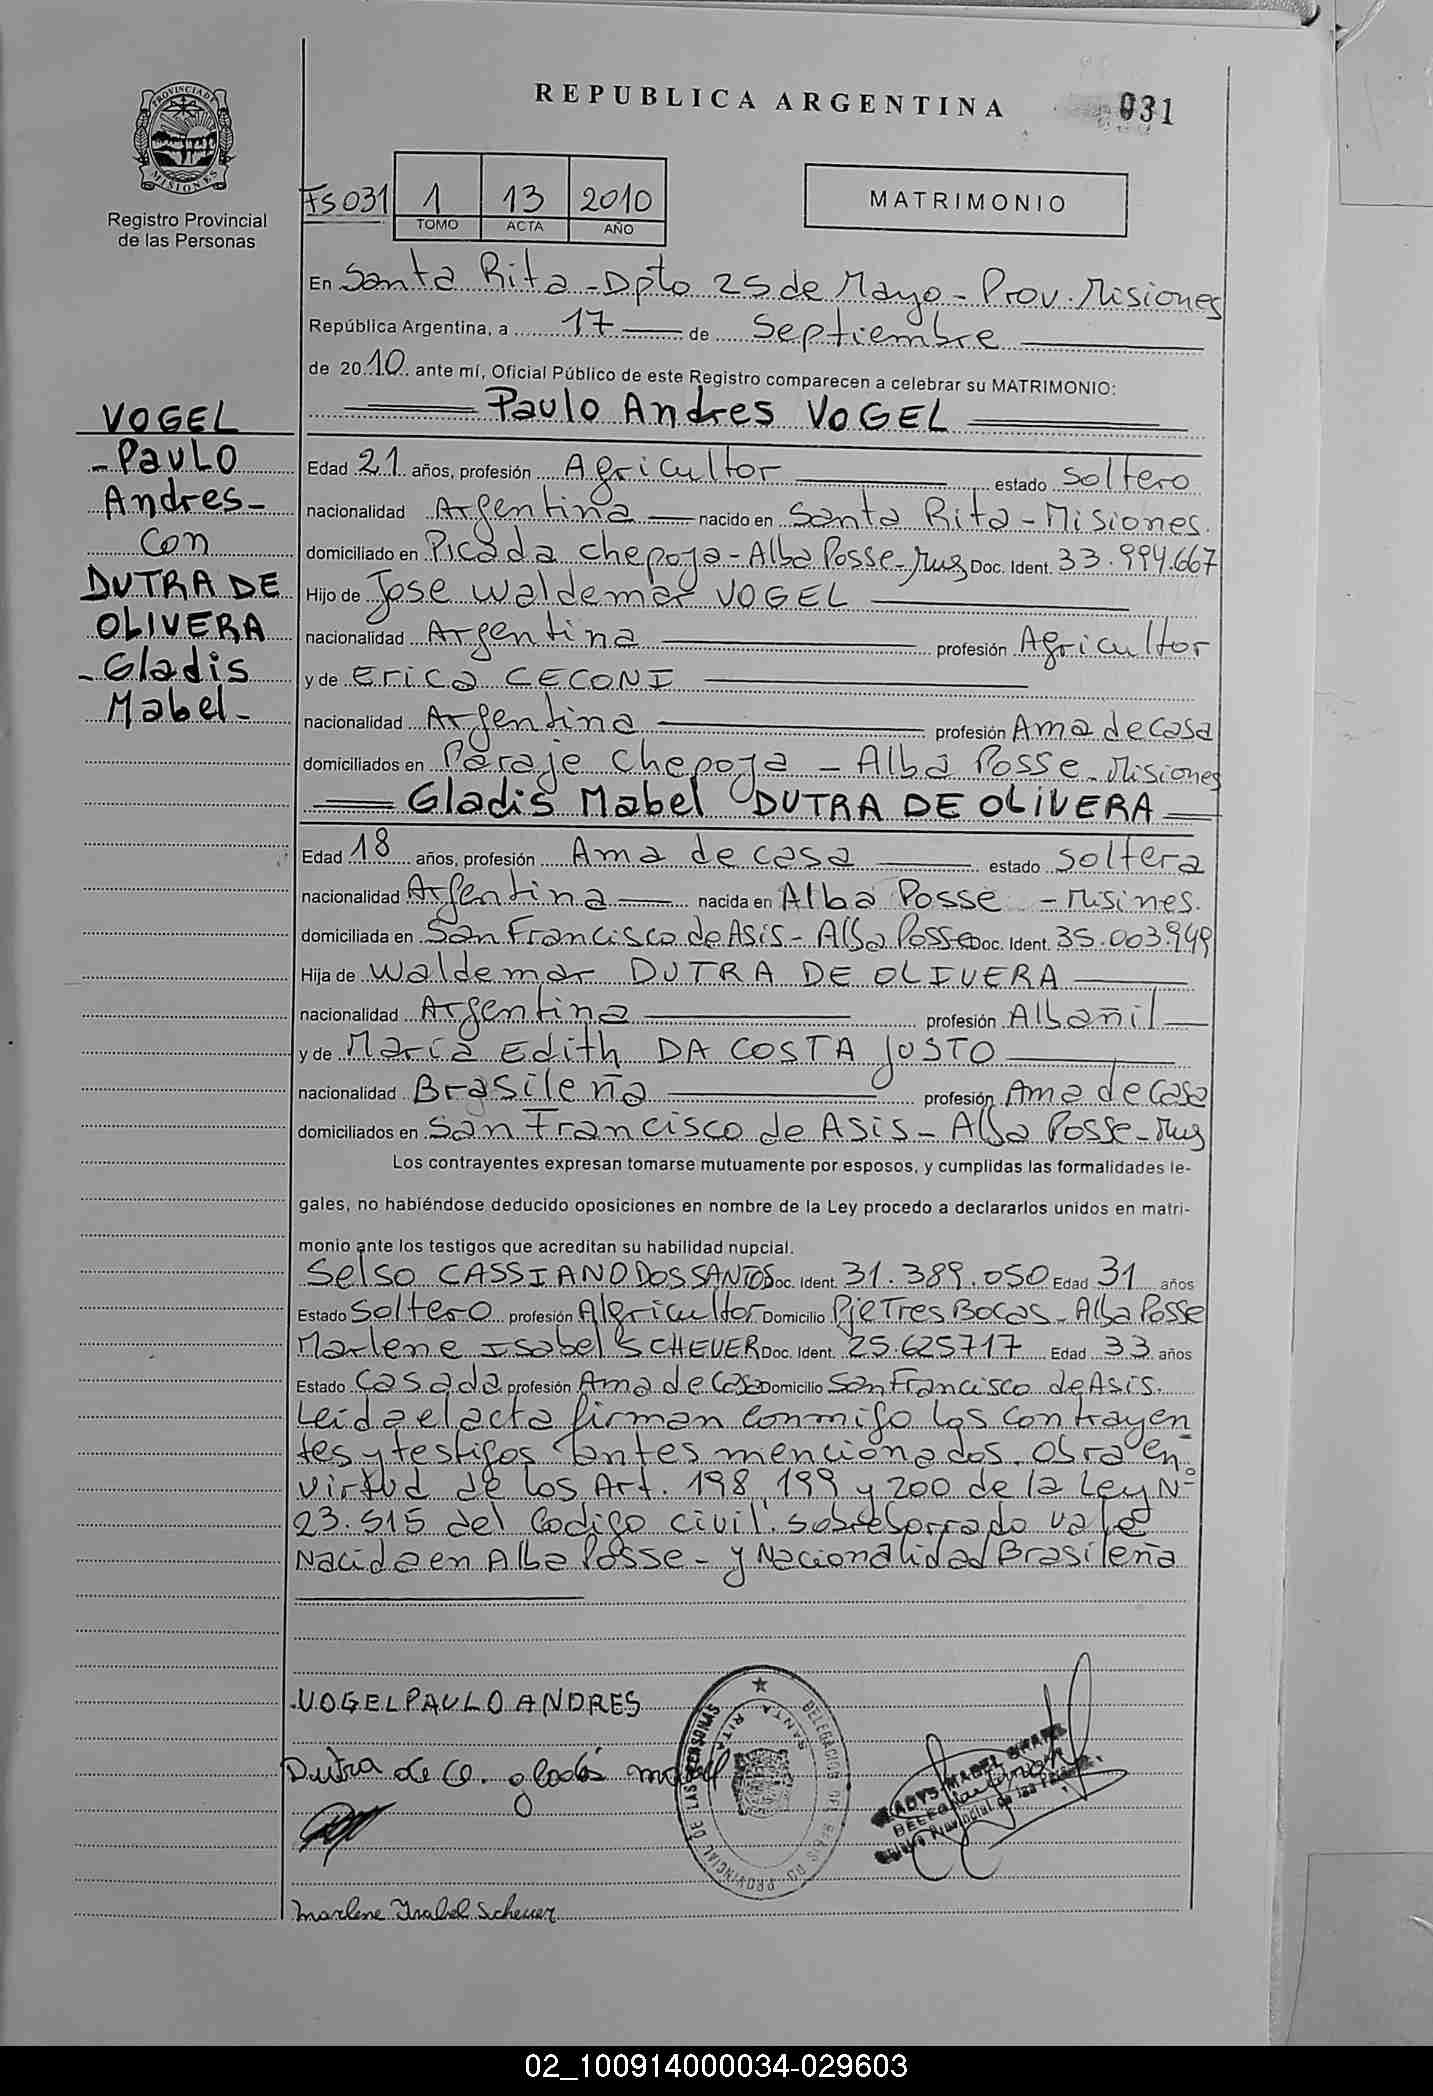 REPUBLICA ARGENTINA
031
PROVINCIA DE MISIONES
Registro Provincial
de las Personas
FS 031
1 13 2010
TOMO ACTA AÑO
MATRIMONIO
En Santa Rita - Dpto 25 de Mayo - Prov. Misiones
República Argentina, a 17 de Septiembre
de 2010 ante mí, Oficial Público de este Registro comparecen a celebrar su MATRIMONIO:
Paulo Andres VOGEL
VOGEL
- PAULO
Andres -
Con
DUTRA DE
OLIVERA
- Gladis
Mabel -
Edad 21 años, profesión Agricultor estado soltero
nacionalidad Argentina nacido en Santa Rita - Misiones.
domiciliado en Picada Chepoya - Alba Posse - Mns Doc. Ident. 33.994.667
Hijo de Jose Waldemar VOGEL
nacionalidad Argentina profesión Agricultor
y de Erica CECONI
nacionalidad Argentina profesión Ama de Casa
domiciliados en Paraje Chepoya - Alba Posse - Misiones
Gladis Mabel DUTRA DE OLIVERA
Edad 18 años, profesión Ama de casa estado soltera
nacionalidad Argentina nacida en Alba Posse - Misines.
domiciliada en San Francisco de Asis - Alba Posse Doc. Ident. 35.003.949
Hija de Waldemar DUTRA DE OLIVERA
nacionalidad Argentina profesión Albañil
y de Maria Edith DA COSTA JUSTO
nacionalidad Brasileña profesión Ama de Casa
domiciliados en San Francisco de Asis - Alba Posse - Mns
Los contrayentes expresan tomarse mutuamente por esposos, y cumplidas las formalidades le-
gales, no habiéndose deducido oposiciones en nombre de la Ley procedo a declararlos unidos en matri-
monio ante los testigos que acreditan su habilidad nupcial.
Selso CASSIANO DOS SANTOS Doc. Ident. 31.389.050 Edad 31 años
Estado Soltero profesión Agricultor Domicilio Pje Tres Bocas - Alba Posse
Marlene Isabel SCHEUER Doc. Ident. 25.625717 Edad 33 años
Estado Casada profesión Ama de Casa Domicilio San Francisco de Asis.
Leida el acta firman conmigo los contrayen
tes y testigos antes mencionados. Obra en
virtud de los Art. 198, 199 y 200 de la Ley Nº
23.515 del Codigo civil. sobreborrado vale
Nacida en Alba Posse - y Nacionalidad Brasileña
VOGEL PAULO ANDRES
Dutra de O. gladis mabel
DELEGACION DEL REGISTRO PROVINCIAL DE LAS PERSONAS
SANTA RITA
GLADYS MABEL
Marlene Isabel Scheuer
02_100914000034-029603